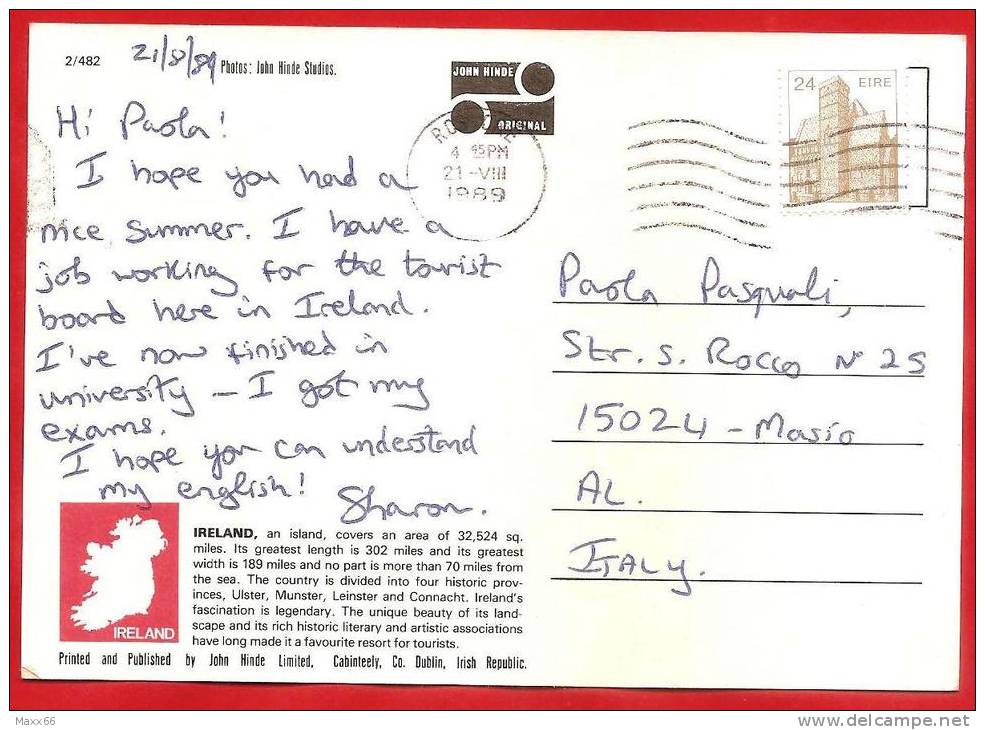 2/482
21/8/89
Photos: John Hinde Studios.
JOHN HINDE
ORIGINAL
4 45PM
21-VIII
1989
24 EIRE
Hi Paola!
I hope you had a
nice summer. I have a
job working for the tourist
board here in Ireland.
I've now finished in
university — I got my
exams.
I hope you can understand
my english!
Sharon.
Paola Pasquali,
Str. S. Rocco N° 25
15024 - Masio
AL.
ITALY.
IRELAND
IRELAND, an island, covers an area of 32,524 sq.
miles. Its greatest length is 302 miles and its greatest
width is 189 miles and no part is more than 70 miles from
the sea. The country is divided into four historic prov-
inces, Ulster, Munster, Leinster and Connacht. Ireland's
fascination is legendary. The unique beauty of its land-
scape and its rich historic literary and artistic associations
have long made it a favourite resort for tourists.
Printed and Published by John Hinde Limited, Cabinteely, Co. Dublin, Irish Republic.
Maxx66
www.delcampe.net